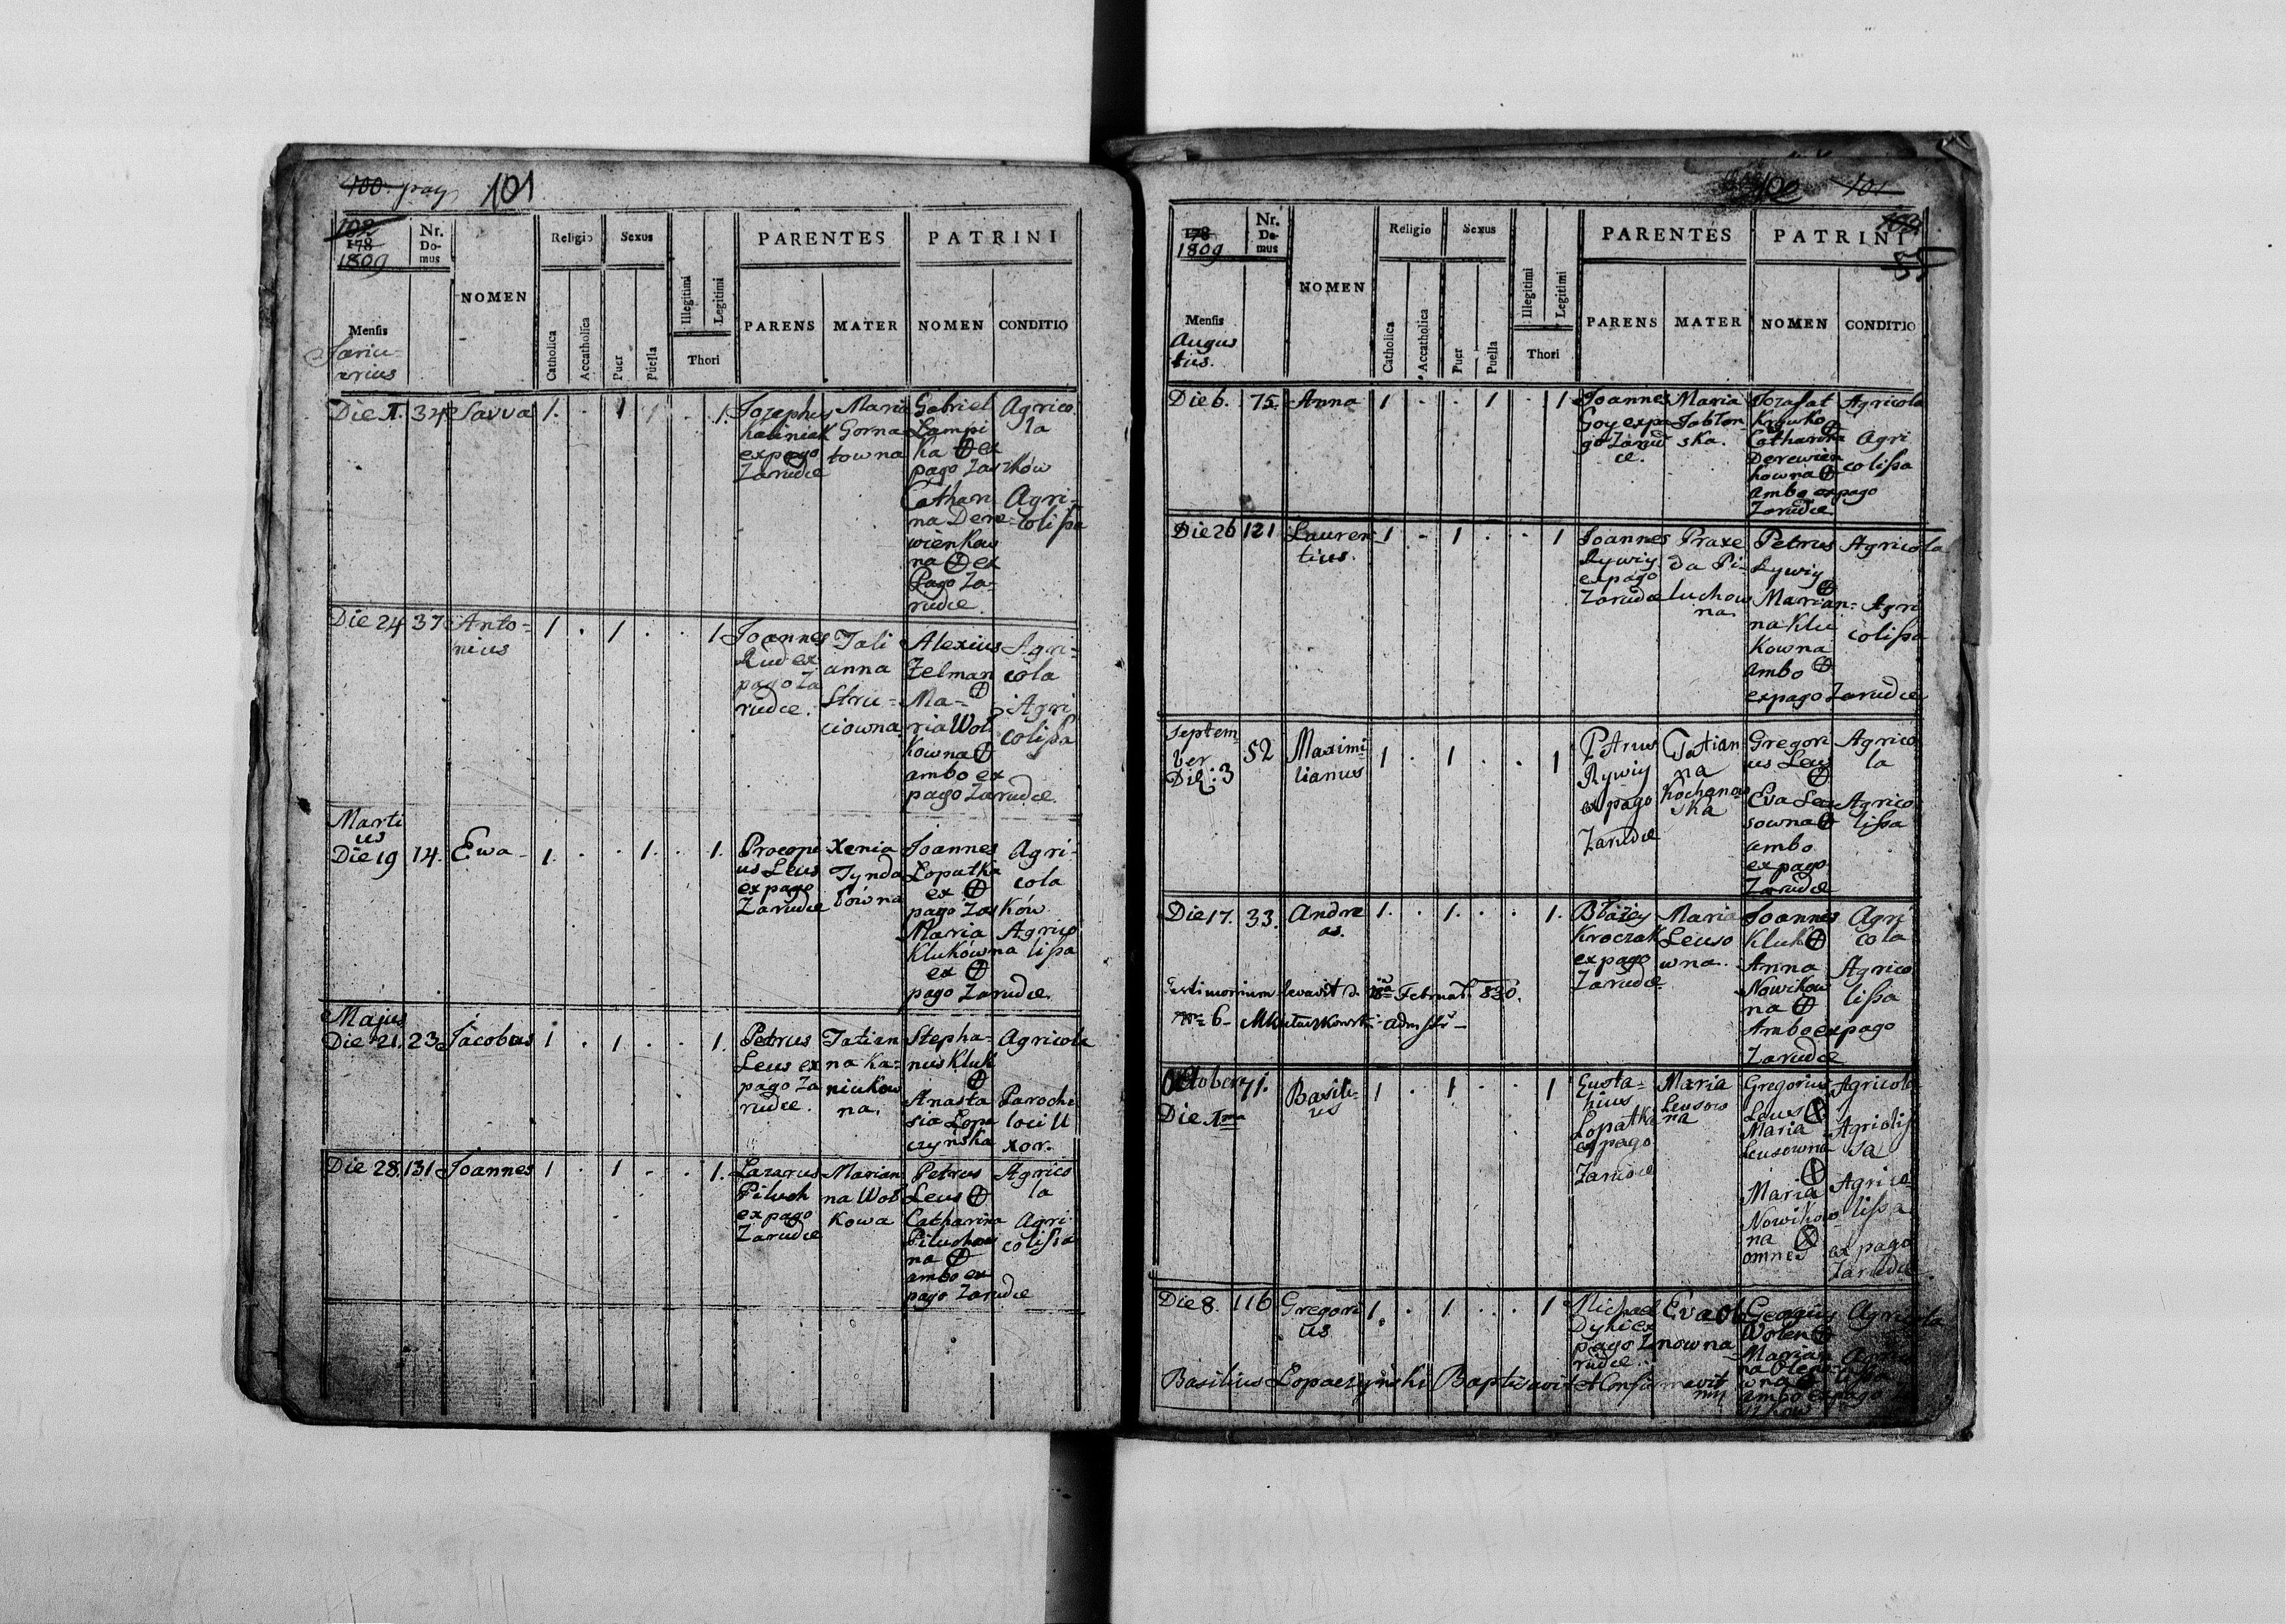 100 pag 101
102
178
1809
Nr.
Do-
mus
NOMEN
Religio
Sexus
Catholica
Accatholica
Puer
Puella
Illegitimi
Legitimi
Thori
PARENTES
PARENS
MATER
PATRINI
NOMEN
CONDITIO
Mensis
Janu-
arius
Die 1. 34 Savva 1. . 1 . 1.
Josephus
Kaliniak
ex pago
Zarudce
Maria
Gorna
towna
Gabriel
Lampi
ka ⊕ ex
pago Zaszków
Agrico
la
Cathari
na Dere-
wienkow
na ⊕ ex
Pago Za-
rudce.
Agri-
colissa
Die 24 37 Anto-
nius
1 . 1 . . 1
Joannes
Rud ex
pago Za
rudce.
Juli
anna
Stru-
ciowna
Alexius
Zelman
⊕
Ma-
ria Wol
kowna ⊕
ambo ex
pago Zarudce.
Agri-
cola
Agri
colissa
Marti
us
Die 19 14. Ewa 1. . . 1. . 1.
Procopi
us Leus
ex pago
Zarudce
Xenia
Tynda
łówna
Joannes
Lopatka
ex ⊕
pago Zaszków
Maria
Klukówna
ex ⊕
pago Zarudce.
Agri-
cola
Agrico
lissa
Majus
Die 21. 23 Jacobus 1 . 1 . . 1.
Petrus
Leus ex
pago Za
rudce.
Tatian
na Ka-
niukow
na.
Stepha-
nus Kluk
⊕
Anasta
sia Lopa
czynska
Agricola
Parochi
loci U
xor.
Die 28. 131 Joannes 1 . 1 . . 1.
Lazarus
Piluch
ex pago
Zarudce
Marian
na Wol
kowa
Petrus
Leus ⊕
Catharina
Piluchow
na ⊕
ambo ex
pago Zarudce
Agrico
la
Agri
colissa
102 101
103
55
178
1809
Nr.
Do-
mus
NOMEN
Religio
Sexus
Catholica
Accatholica
Puer
Puella
Illegitimi
Legitimi
Thori
PARENTES
PARENS
MATER
PATRINI
NOMEN
CONDITIO
Mensis
Augus
tus.
Die 6. 75. Anna 1 . . 1 . 1
Joannes
Goy ex pa
go Zarud
ce.
Maria
Jablon-
ska.
Jozafat
Krywko
⊕
Catharina
Derewien
kowna ⊕
ambo ex pago
Zarudce
Agricola
Agri
colissa
Die 26 121 Lauren
tius.
1 . 1 . . 1
Joannes
Rywiy
ex pago
Zarudce
Praxe
da Pi-
luchow
na
Petrus
Rywiy
⊕
Marian-
na Klu
kowna
ambo ⊕
ex pago Zarudce
Agricola
Agri
colissa
Septem
ber
Die: 3 52 Maximi-
lianus
1 . 1 . . 1
Petrus
Rywiy
ex pago
Zarudce
Tatian
na
Kochanow
ska
Gregori
us Leus
⊕
Eva Leu
sowna ⊕
ambo
ex pago
Zarudce
Agrico
la
Agrico
lissa
Die 17. 33. Andre
as.
1. . 1. . . 1.
Błażey
Kroczak
ex pago
Zarudce
Maria
Leuso
wna.
Joannes
Kluk ⊕
Anna
Nowikow
na ⊕
Ambo ex pago
Zarudce
Agri
cola
Agrico
lissa
Testimonium levavit d. Februar. 830.
Nro 6 -
October 71. Basili-
us
Die 1ma
1 . 1 . . 1
Eusta-
hius
Lopatka
ex pago
Zarudce
Maria
Leusow
na
Gregorius
Leus ⊗
Maria
Leusowna
⊗
Maria
Nowikow
na ⊗
omnes ex pago
Zarudce
Agricola
Agricolis
sa
Agrico-
lissa
Die 8. 116 Gregori
us
1 . 1 . . 1
Michael
Dyki ex
pago Za
rudce.
Eva Ol
nowna
Georgius
Wolen ⊕
Marian
na
ambo ex pago
Agricola
Basilius Lopaczyński Baptisavit et Confirmavit
mp